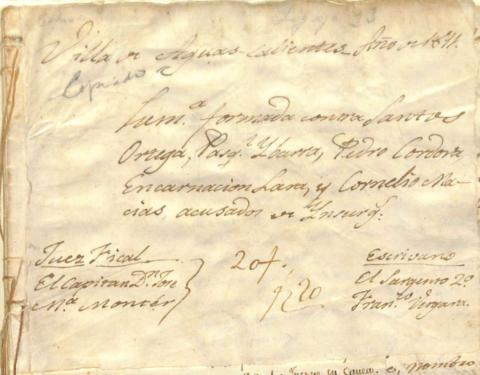 Villa de Aguas calientes Año de 1811.
Copiado
Sum.ª formada contra Santos
Ortega, Pasq.l Ybarra, Pedro Cordova
Encarnacion Lara, y Cornelio Ma-
cias acusados de Ynsurg.s
Juez Fical
El Capitan D.n Jose
M.ª Monter
20f.
9720
Escrivano
El Sargento 2.º
Fran.co Vergara.